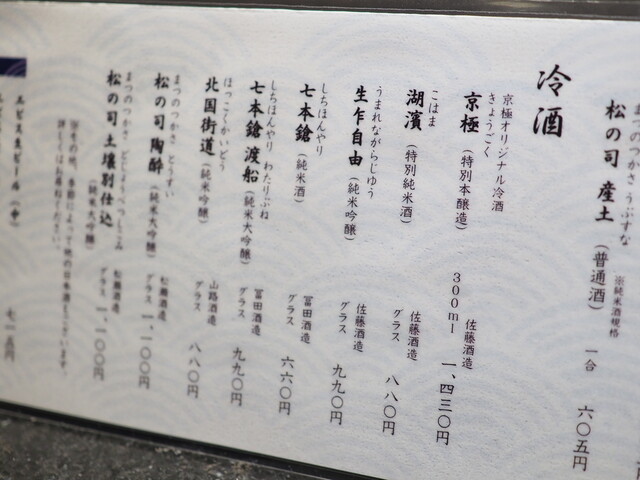 まつのつかさ うぶすな
松の司 産土（普通酒）
※純米酒規格
一合 六〇五円
冷酒
京極オリジナル冷酒
きょうごく
京極（特別本醸造）
佐藤酒造
300ml 一、四三〇円
こはま
湖濱（特別純米酒）
佐藤酒造
グラス 八八〇円
うまれながらじゆう
生乍自由（純米吟醸）
佐藤酒造
グラス 九九〇円
しちほんやり
七本鎗（純米酒）
冨田酒造
グラス 六六〇円
しちほんやり わたりぶね
七本鎗 渡船（純米大吟醸）
冨田酒造
グラス 九九〇円
ほっこくかいどう
北国街道（純米吟醸）
山路酒造
グラス 八八〇円
まつのつかさ とうすい
松の司 陶酔（純米大吟醸）
松瀬酒造
グラス 一、一〇〇円
まつのつかさ どじょうべつしこみ
松の司 土壌別仕込（純米大吟醸）
松瀬酒造
グラス 一、一〇〇円
※その他、季節によって他の日本酒もございます。
詳しくはお尋ねください。
ヱビス生ビール（中）
七一五円